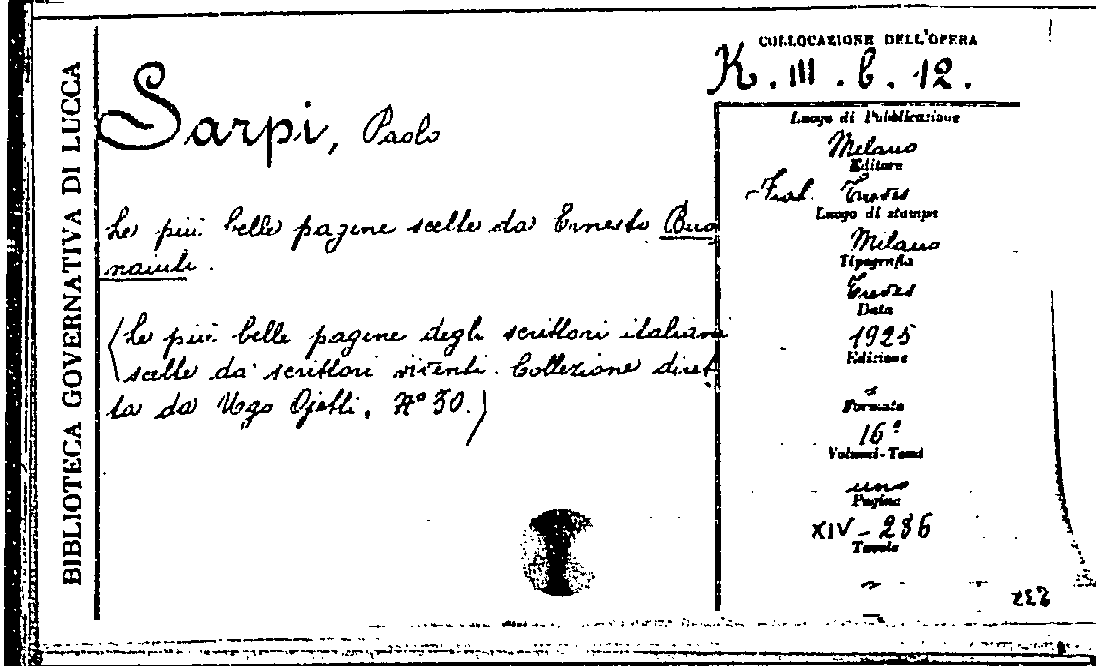 BIBLIOTECA GOVERNATIVA DI LUCCA
Sarpi, Paolo
Le più belle pagine scelte da Ernesto Buo
naiuti.
(Le più belle pagine degli scrittori italiani
scelte da scrittori viventi. Collezione diret
ta da Ugo Ojetti. N° 30.)
COLLOCAZIONE DELL'OPERA
K. III. b. 12.
Luogo di Pubblicazione
Milano
Editore
Frat. Treves
Luogo di stampa
Milano
Tipografia
Treves
Data
1925
Edizione
Formato
16°
Volumi-Tomi
uno
Pagine
XIV - 286
Tavole